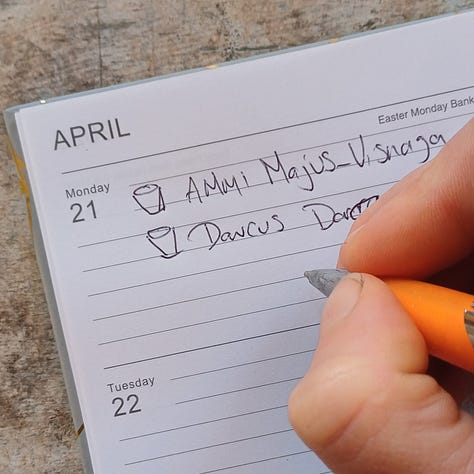 APRIL
Easter Monday Bank
Monday
21
AMMi Majus-Visnaga
Daucus
Tuesday
22